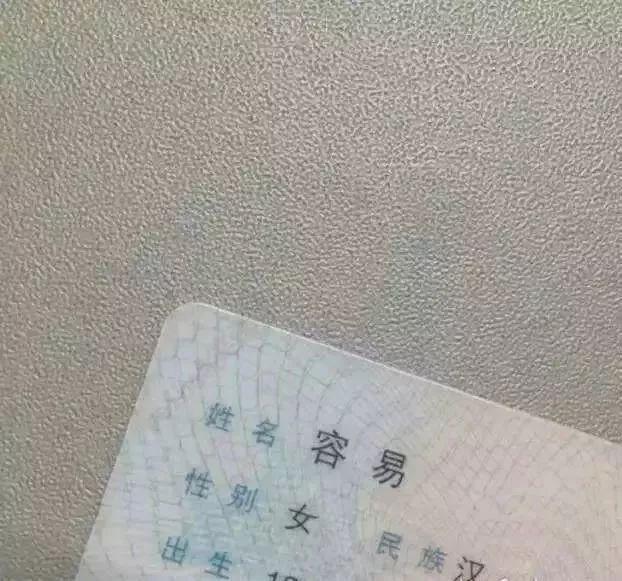 姓名 容易
性别 女 民族 汉
出生 19